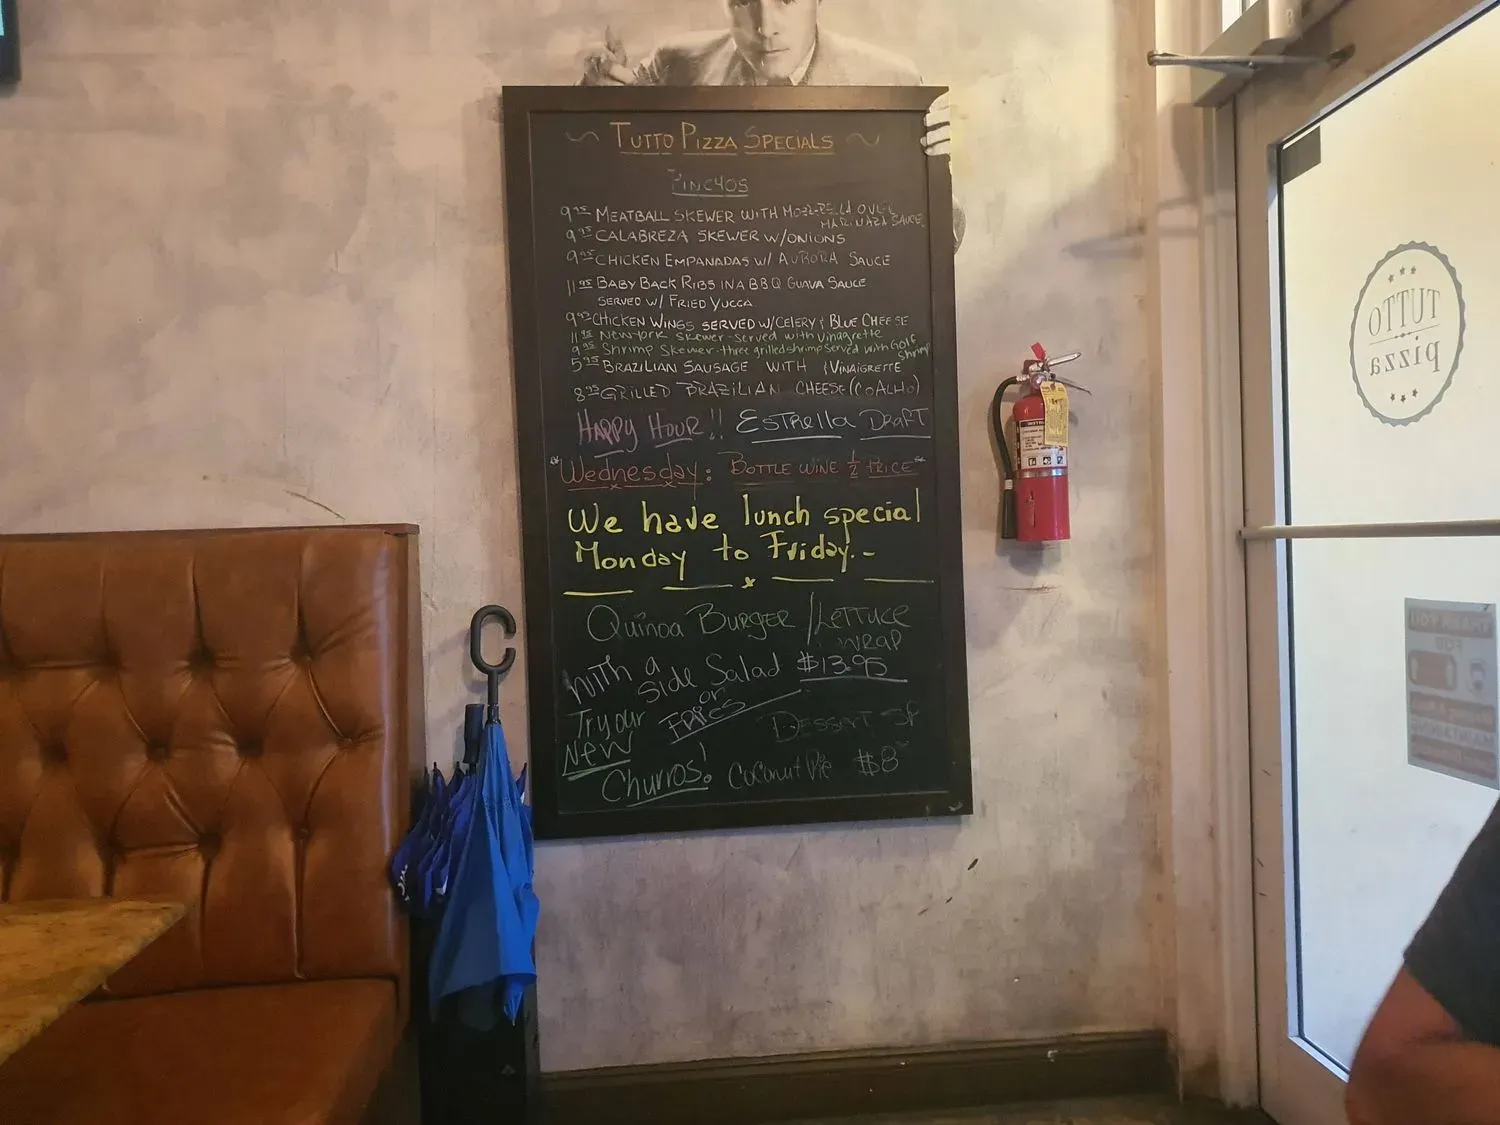 ~ TUTTO PIZZA SPECIALS ~
PINCHOS
9.95 MEATBALL SKEWER WITH MOZZRELLA OVER
MARINARA SAUCE
9.95 CALABREZA SKEWER W/ONIONS
9.95 CHICKEN EMPANADAS W/ AURORA SAUCE
11.95 BABY BACK RIBS IN A BBQ GUAVA SAUCE
SERVED W/ FRIED YUCCA
9.95 CHICKEN WINGS SERVED W/CELERY & BLUE CHEESE
11.95 Newyork skewer-served with vinagrette
9.95 Shrimp skewer-three grilled shrimp served with Golf
shrimp
5.95 BRAZILIAN SAUSAGE WITH VINAIGRETTE
8.95 GRILLED BRAZILIAN CHEESE (COALHO)
HAPPY HOUR!! ESTRELLA DRAFT
"Wednesday: BOTTLE WINE 1/2 PRICE"
We have lunch special
Monday to Friday.-
QUINOA BURGER / LETTUCE
WRAP
WITH A side Salad $13.95
or
FRIES
Try our
NEW
Churros!
DESSERT SP
COCONUT PIE $8
TUTTO
pizza
THANK YOU
FOR